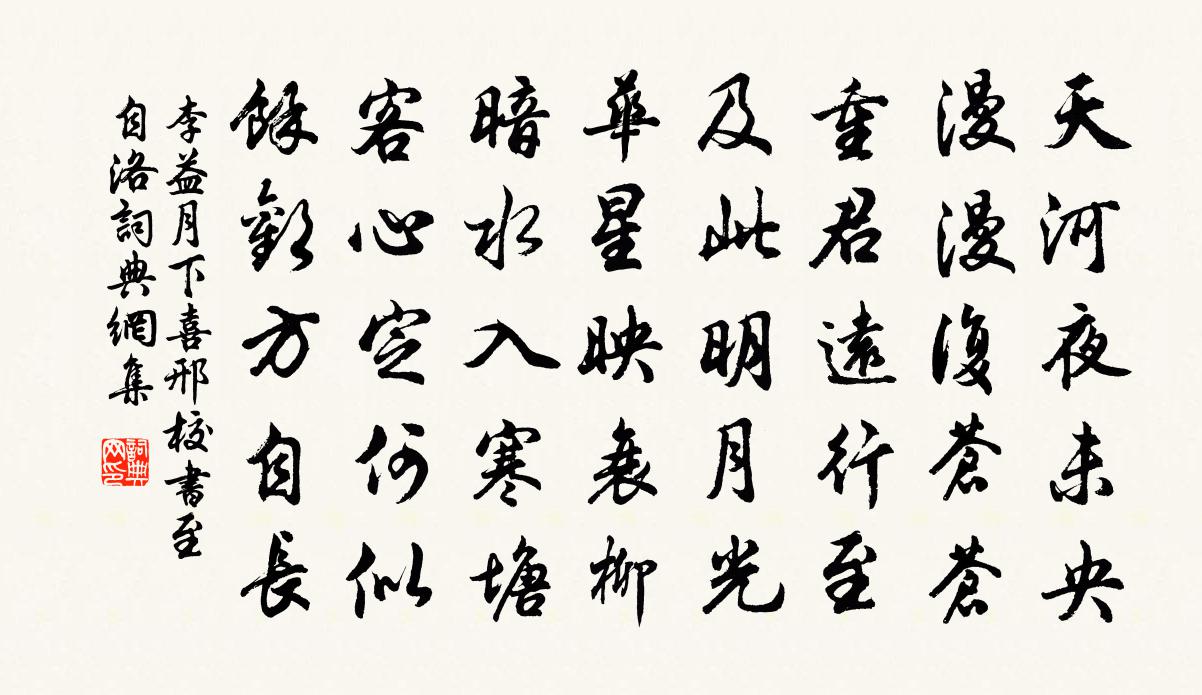 天河夜未央
漫漫復蒼蒼
重君遠行至
及此明月光
華星映衰柳
暗水入寒塘
客心定何似
餘歡方自長
李益月下喜邢校書至
自洛詞典網集
詞典
网印